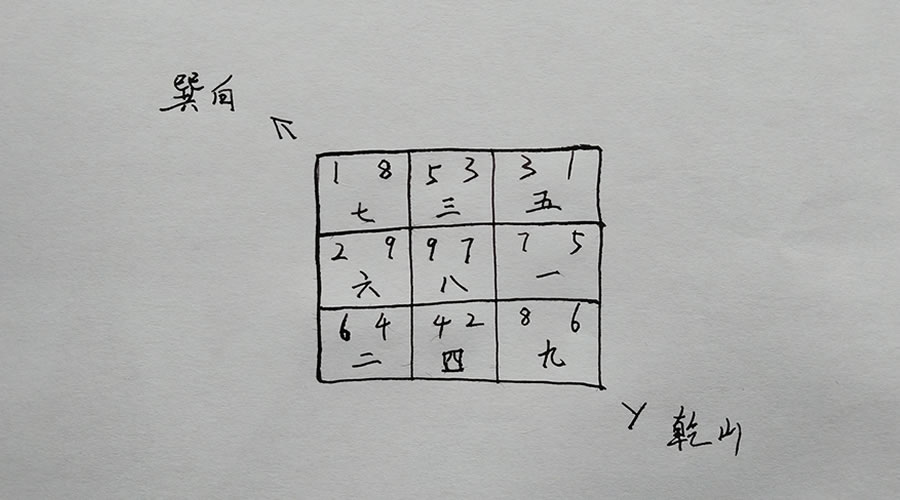 巽向
1 8 5 3 3 1
七 三 五
2 9 9 7 7 5
六 八 一
6 4 4 2 8 6
二 四 九
乾山